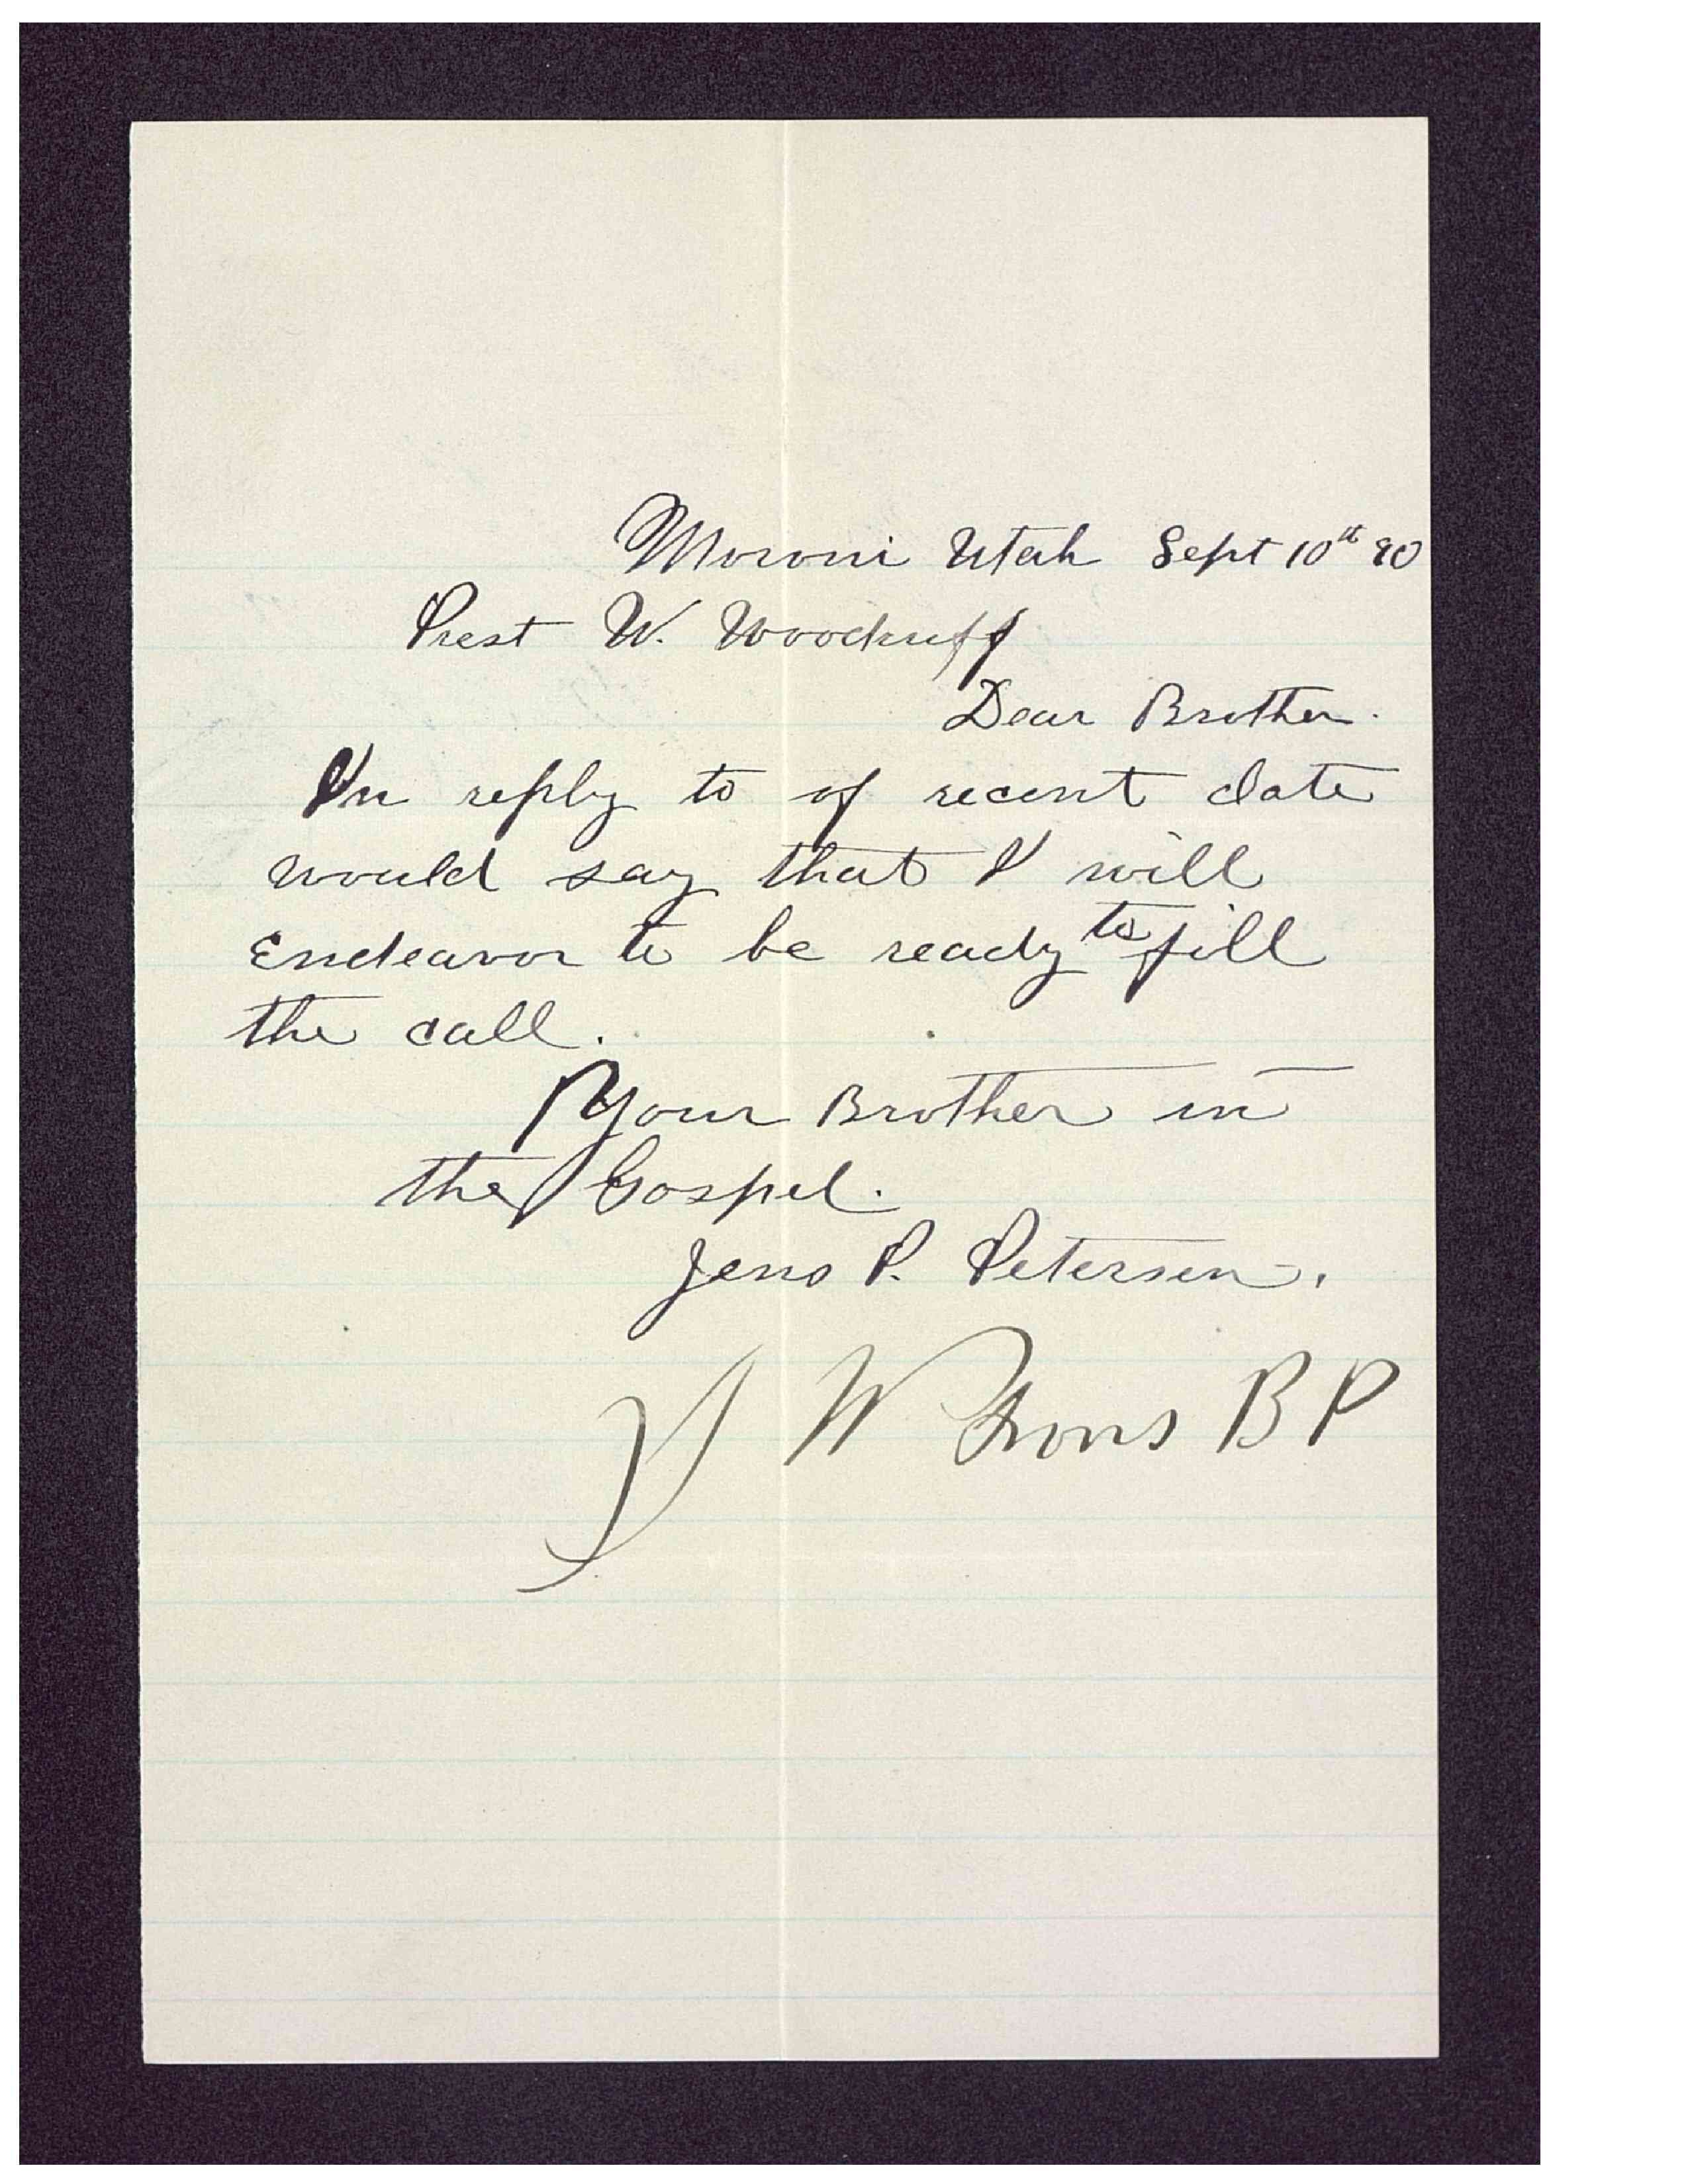 Moroni Utah Sept 10th 90
Prest W. Woodruff
Dear Brother.
In reply to of recent date
would say that I will
Endeavor to be ready to fill
the call.
Your Brother in
the Gospel.
Jens P. Petersen.
J W Irons B P